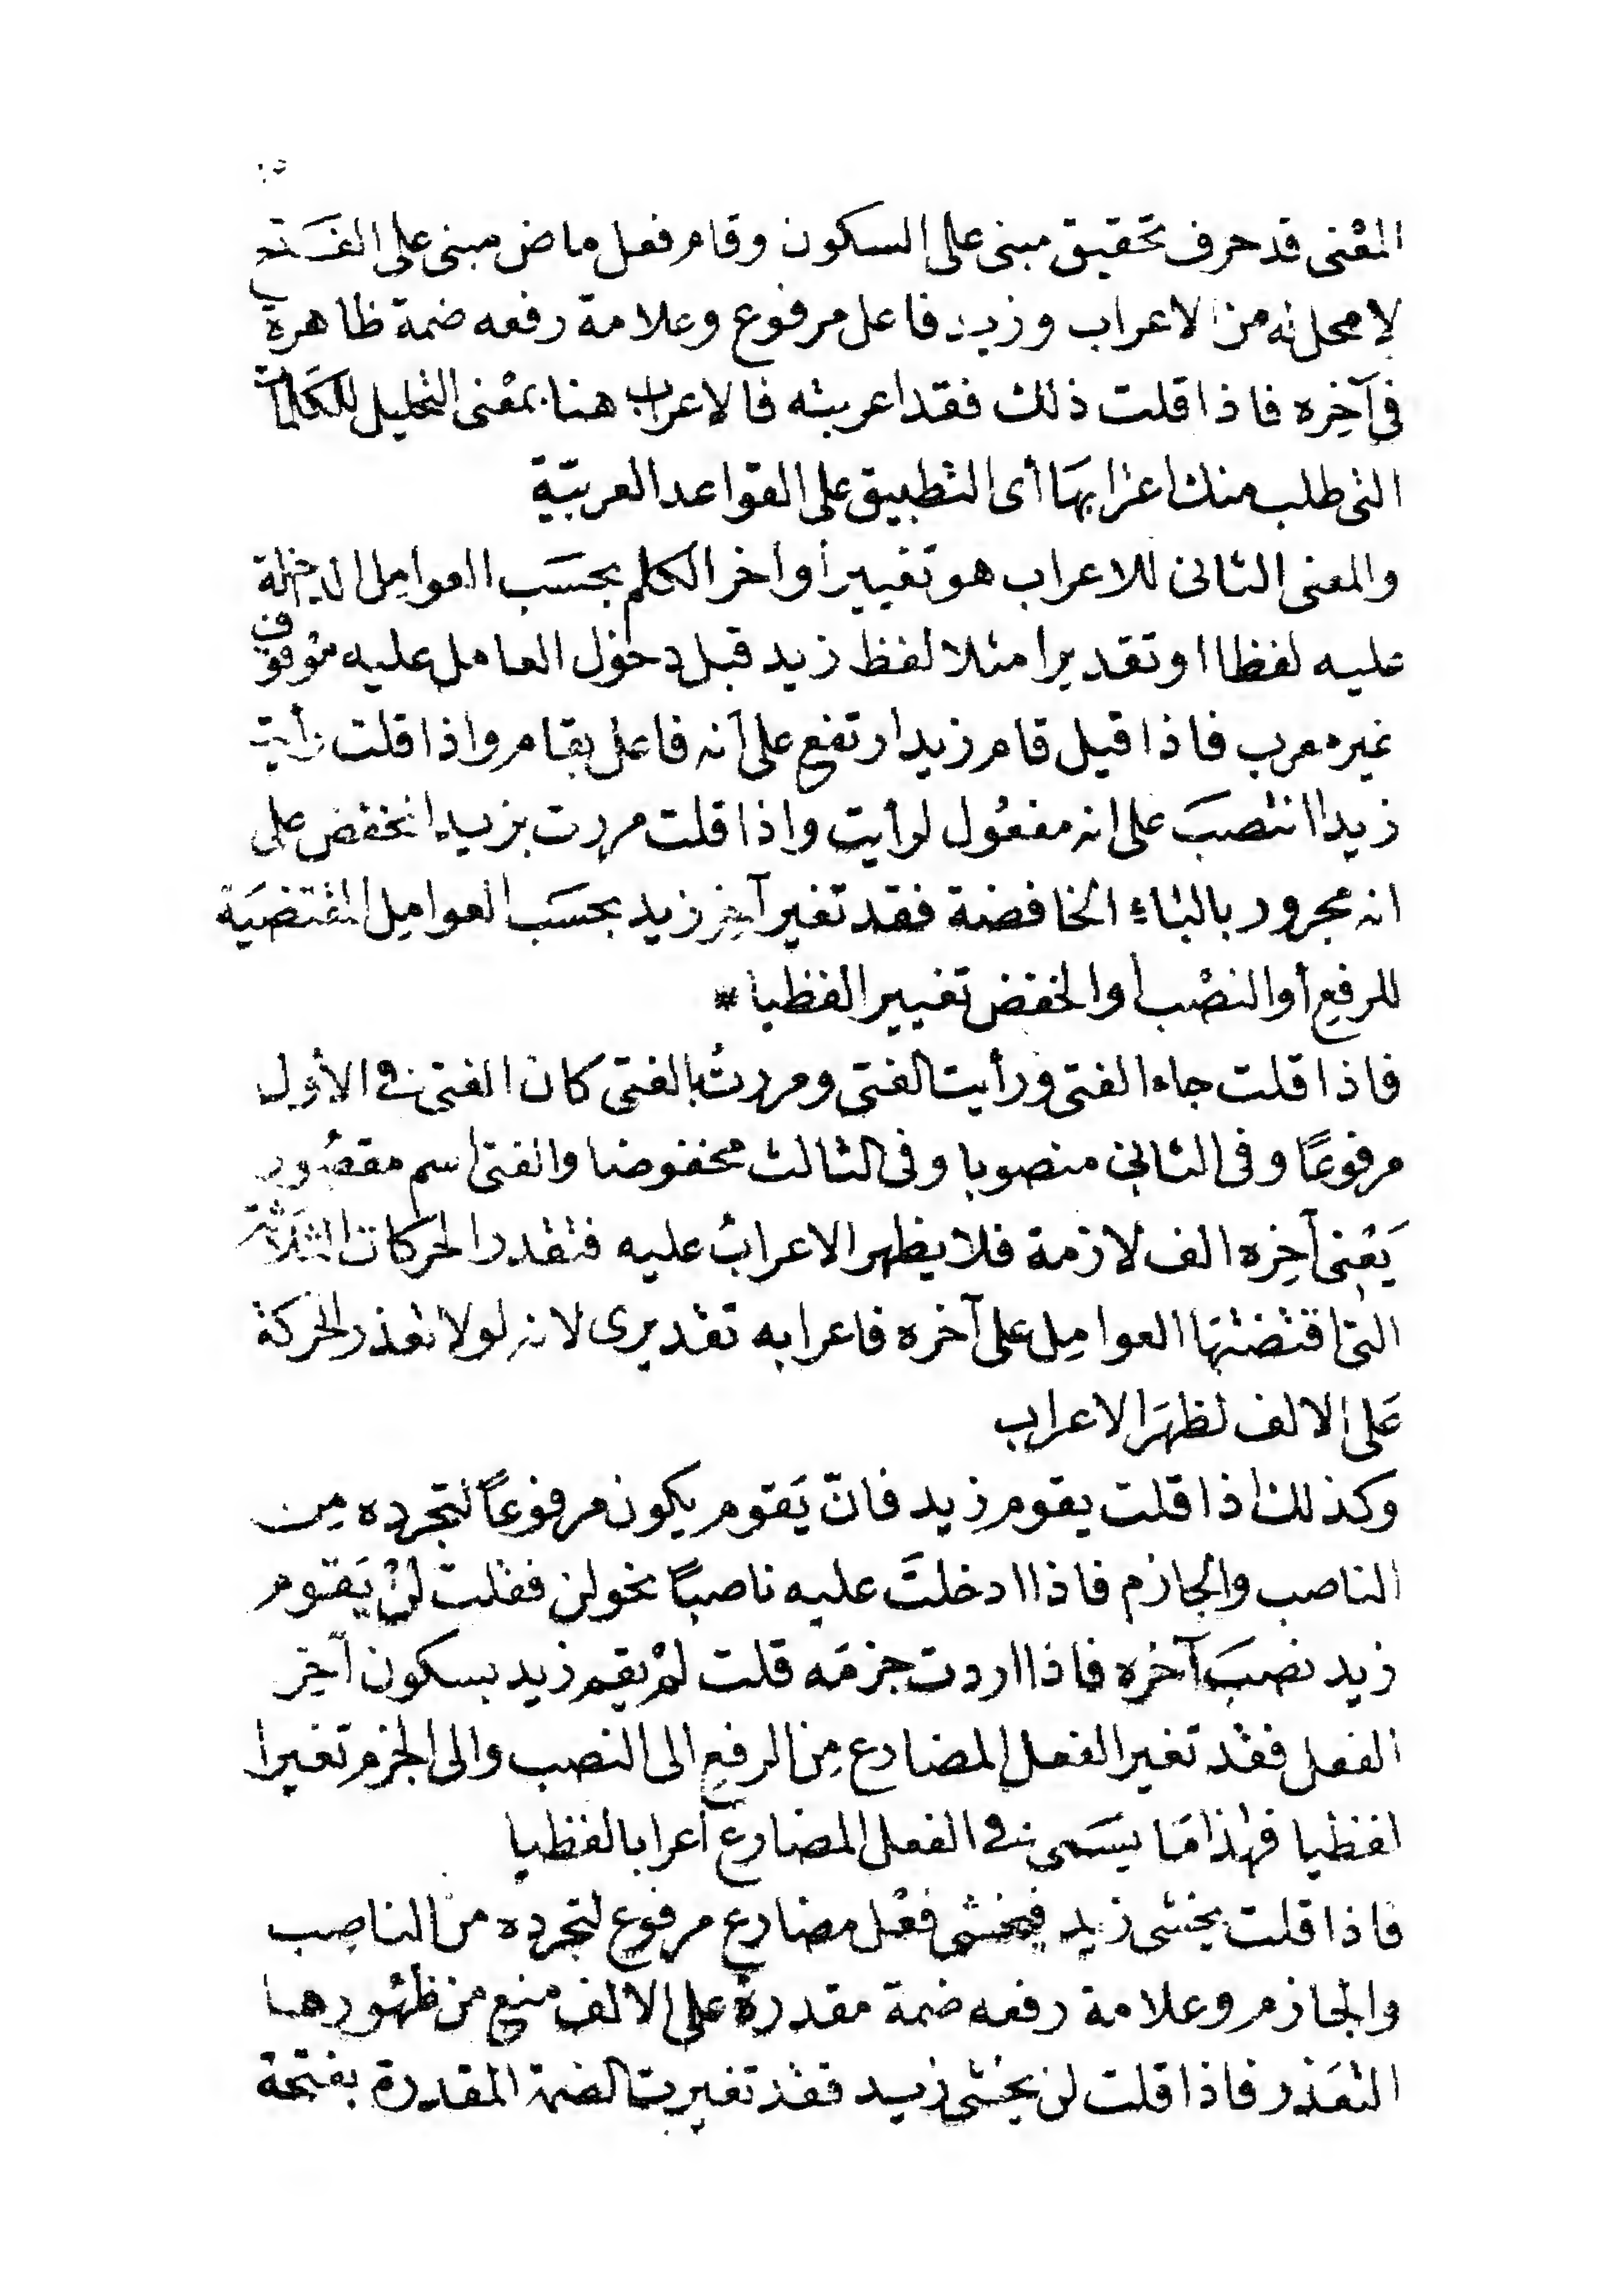 المعْنى قد حرف تحقيق مبنى على السكون وقام فعل ماض مبنى على الفَتح
لا محل له من الاعراب وزيد فاعل مرفوع وعلامة رفعه ضمة ظاهرة
في آخِره فاذا قلت ذلك فقد اعربته فالاعراب هنا بمعْنى التحليل للكَلمات
التى طلب منك اعرابهَا أى التطبيق على القواعد العربيّة
والمعنى الثانى للاعراب هو تغيير أواخر الكلم بحسَب العوامِل الداخلة
عليه لفظا او تقديرا مثلا لفظ زيد قبل دخول العامل عليه موقوف
غير معرب فاذا قيل قام زيد ارتفع على أنه فاعل بقام واذا قلت رأيت
زيدا انتصبَ على انه مفعُول لرأيت واذا قلت مررت بزيد انخفض على
انه مجرور بالباءِ الخافضة فقد تغير آخِر زيد بحسَب العوامِل المقتضيَة
للرفعِ أو النصْب أو الخفض تغييرا لفظيا *
فاذا قلت جاء الفتى ورأيت الفتى ومررتُ بالفتى كان الفتى في الأول
مرفوعًا وفى الثاني منصوبا وفى الثالث مخفوضا والفتى اسم مقصُور
يَعْنى آخِره الف لازمة فلا يظهر الاعرابُ عليه فتقدر الحركات الثلاثة
التى اقتضتهَا العوامِل على آخره فاعرابه تقديرى لانه لولا تعذر الحركة
عَلى الالف لظهَر الاعراب
وكذلك اذا قلت يقوم زيد فانّ يَقوم يكون مرفوعاً لتجرده مِن
الناصب والجازم فاذا ادخلتَ عليه ناصبًا نحو لن فقلت لنْ يَقوم
زيد نصبَ آخره فاذا اردت جزمَه قلت لمْ يقم زيد بسكون آخِر
الفعل فقد تغير الفعل المضارع مِن الرفعِ الى النصب والى الجزم تغيرا
لفظيا فهذا مَا يسَمى في الفعل المضارع اعرابا لفظيا
فاذا قلت يخشى زيد فيخشى فعْل مضارع مرفوع لتجرده من الناصِب
والجازم وعلامة رفعه ضمة مقدرة على الالف منع من ظهُورها
التعَذر فاذا قلت لن يخشى زيد فقد تغيرت الضمة المقدرة بفتحة